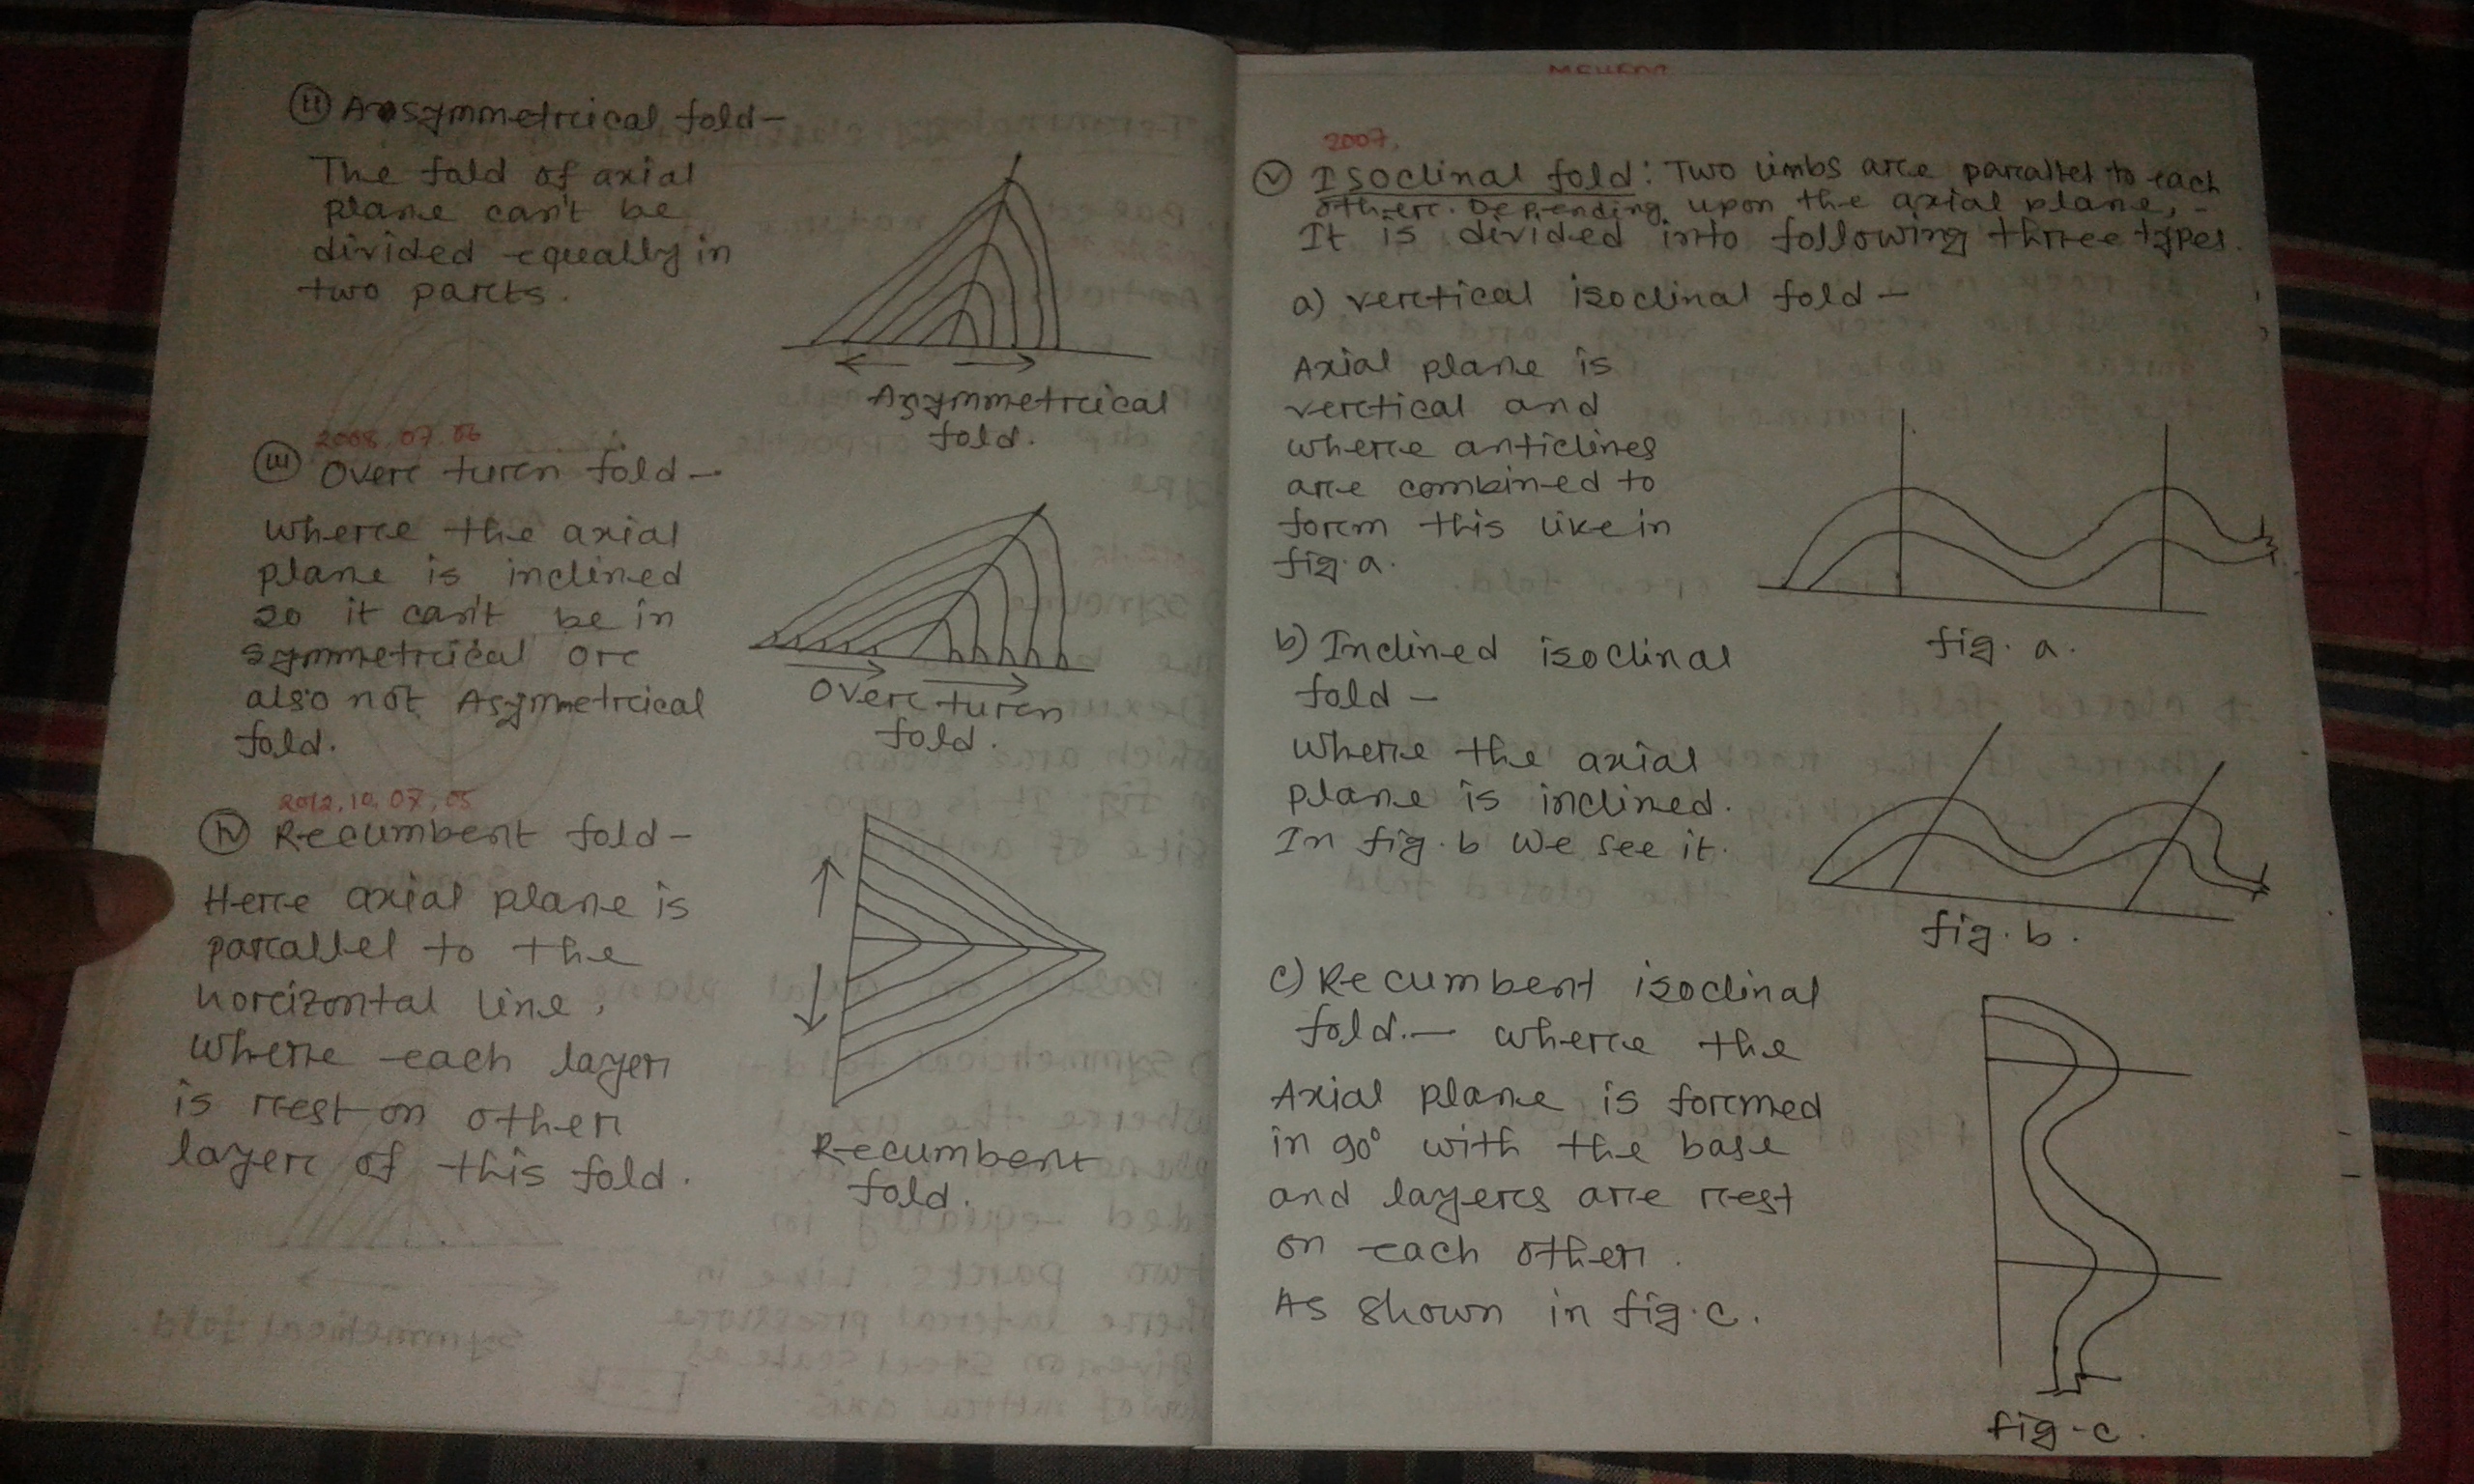 ii) Asymmetrical fold-
The fold of axial
plane can't be
divided equally in
two parts.
Asymmetrical
fold.
2008, 07, 06
iii) Over turn fold-
Where the axial
plane is inclined
so it can't be in
symmetrical or
also not Asymmetrical
fold.
Over turn
fold.
2012, 10, 07, 05
iv) Recumbent fold-
Here axial plane is
parallel to the
horizontal line,
where each layer
is rest on other
layer of this fold.
Recumbent
fold.
2007,
v) Isoclinal fold: Two limbs are parallel to each
other. Depending upon the axial plane,-
It is divided into following three types.
a) vertical isoclinal fold-
Axial plane is
vertical and
where anticlines
are combined to
form this like in
fig. a.
fig. a.
b) Inclined isoclinal
fold-
Where the axial
plane is inclined.
In fig. b We see it.
fig. b.
c) Recumbent isoclinal
fold.- where the
Axial plane is formed
in 90° with the base
and layers are rest
on each other.
As shown in fig. c.
fig-c.